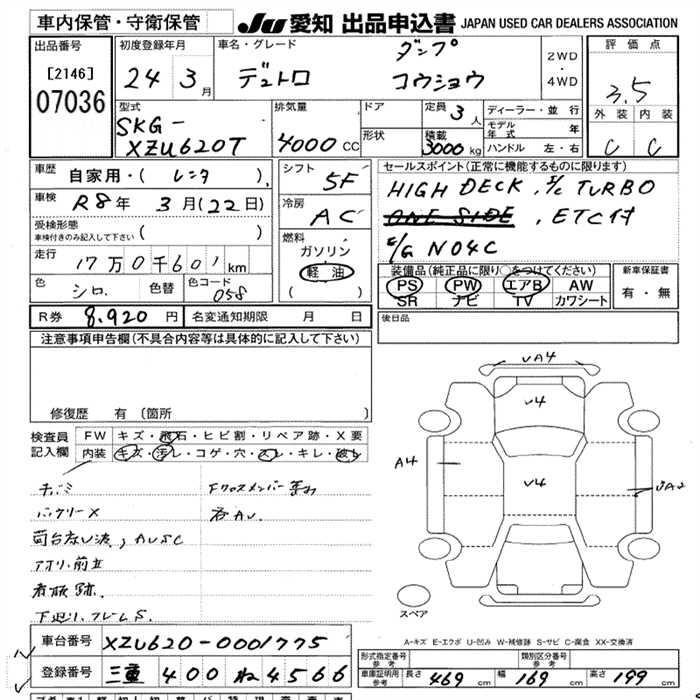 車内保管・守衛保管
JU 愛知 出品申込書 JAPAN USED CAR DEALERS ASSOCIATION
出品番号
[2146]
07036
初度登録年月
24 3月
車名・グレード
ダンプ
デュトロ コウショウ
2WD
・
4WD
評価点
3.5
外装 内装
C C
型式
SKG-
XZU620T
排気量
4000 CC
ドア
形状
定員 3人
積載
3000 kg
ディーラー・並行
モデル年式 年
ハンドル 左・右
車歴 自家用・( レンタ )
車検 R8年 3月(22日)
受検形態
車検付きのみ記入して下さい ( )
走行 17万0千601 km
色 シロ 色替 色コード 058
シフト 5F
冷房 AC
燃料
ガソリン
軽油
( )
セールスポイント(正常に機能するものに限ります)
HIGH DECK, I/C TURBO
ONE SIDE, ETC付
E/G N04C
装備品(純正品に限り○をつけてください)
PS PW エアB AW
SR ナビ TV カワシート
新車保証書
有・無
R券 8,920 円 名変通知期限 月 日
後日品
注意事項申告欄(不具合内容等は具体的に記入して下さい)
修復歴 有 〔箇所 〕
検査員記入欄
FW キズ・飛石・ヒビ割・リペア跡・X要
内装 キズ・汚レ・コゲ・穴・スレ・キレ・破レ
バッテリーX
荷台
アオリ・前立
看板跡
下廻り、フレームS
Fクロスメンバー
VA4
V4
A4
V4
スペア
A-キズ E-エクボ U-凹み W-補修跡 S-サビ C-腐食 XX-交換済
車台番号 XZU620-0001775
登録番号 三重 400 ね 4566
形式指定番号
参考
類別区分番号
参考
車庫証明用
参考
長さ 469 cm 幅 169 cm 高さ 199 cm